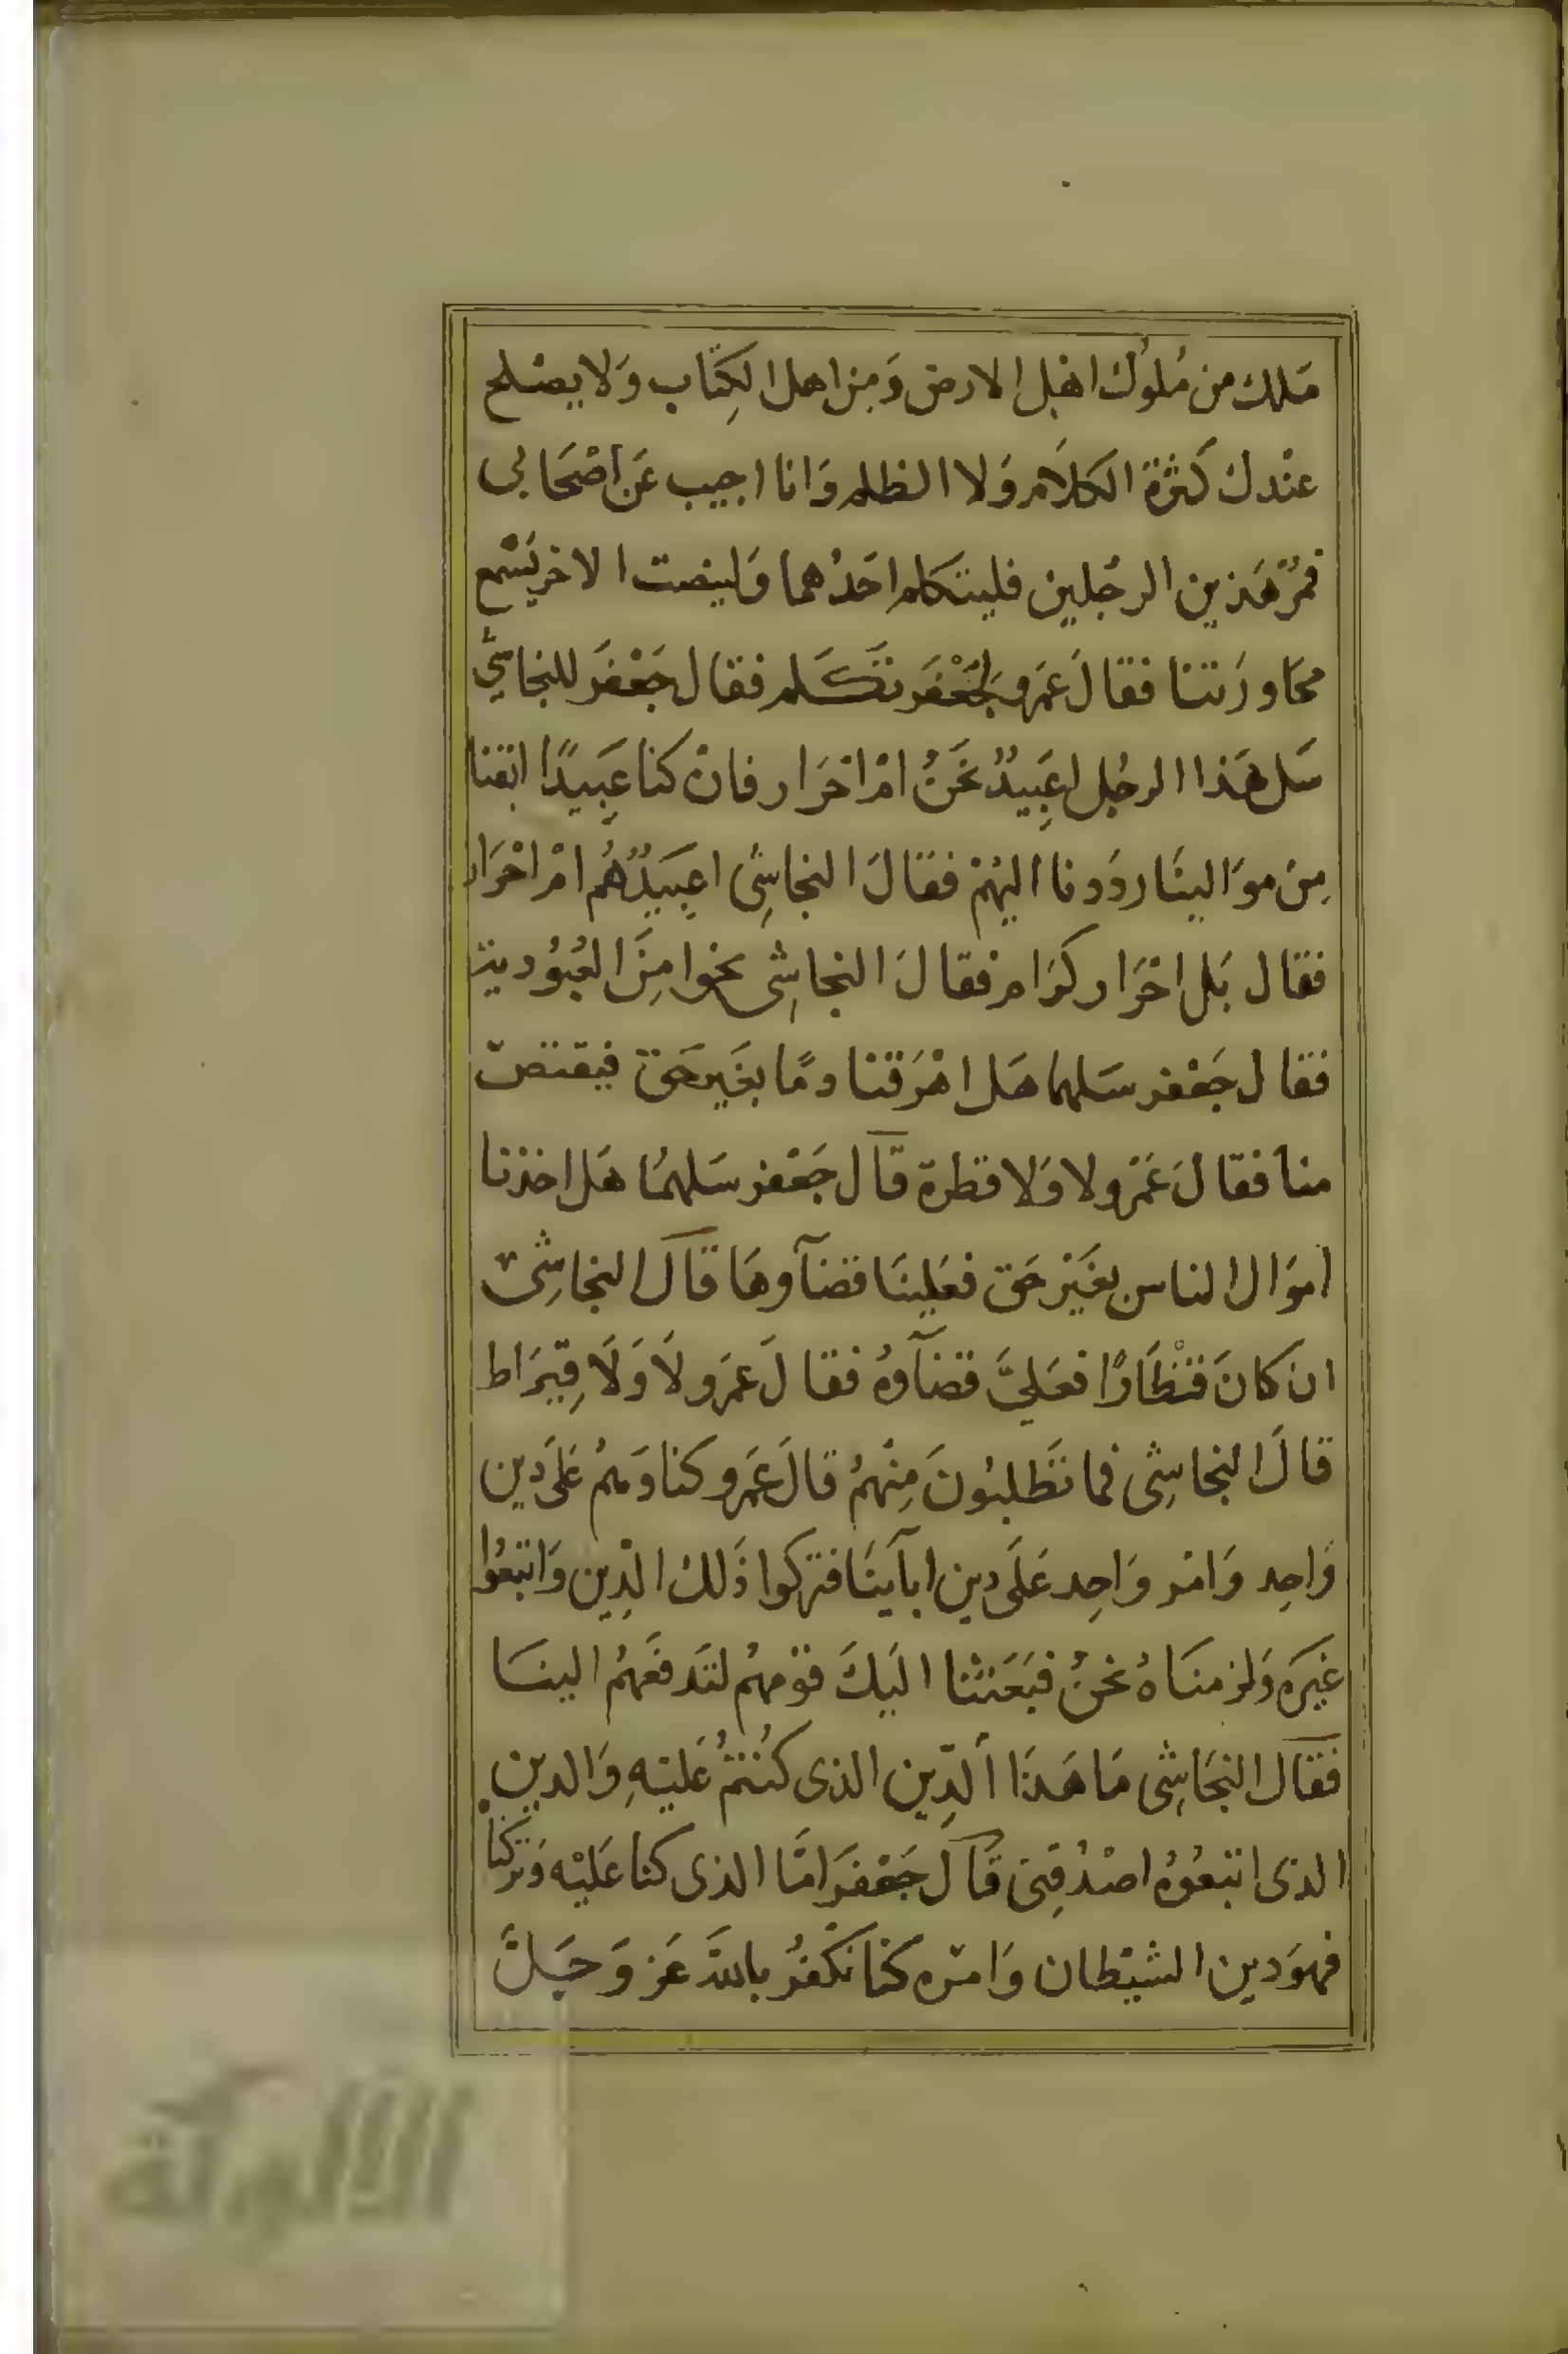 مَلك من مُلوُك اهْل الارض وَمِن اهل الكِتَاب وَلا يصْلح
عنْدك كَثرَة الكلاَم وَلا الظلم وَانا اجيب عَن اصْحَابى
فمُرْ هَذين الرجُلين فليتكلم احَدُهما وَلينصت الاخر يَسْمع
محَاورَتنا فقالَ عَمَرو لجَعْفَر تَكَلم فقال جَعْفَر للنجاشىّ
سَل هَذا الرجُل اعَبِيدٌ نَحَنُ امْ احْرَار فانْ كنا عَبِيدًا ابَقنا
مِنْ موَالينَا ردَدنا اليْهمْ فقالَ النجاشِى اعبِيَدٌ هُم امْ احْرَار
فقال بَل احْرَار كرَام فقالَ النجاشِى نجوا مِنَ العُبُودية
فقال جَعْفر سَلهما هَل اهْرَقنا دمًا بغَير حَق فيقتصّ
منا فقالَ عَمْرو لا وَلا قطرة قال جَعْفر سَلهمُا هَل اخذنا
اموَال الناس بغَيْر حَق فعَليْنَا قضآوهَا قال النجاشِىّ
ان كانَ قنْطَارًا فعَليَّ قضآوهُ فقالَ عَمَرو لاَ وَلَا قِيَراط
قالَ النجاشِى فما تَطلبُونَ مِنْهمُ قالَ عَمَرو كنا وَهمُ عَلَى دين
وَاحِد وَامْر وَاحِد عَلَى دين ابآينَا فتركوا ذَلك الدِين وَاتبَعُوا
غيَره وَلزمنَاهُ نحنُ فبَعَثنا اليَكَ قوْمهمُ لتَدفَعهمُ الينَا
فقال النجَاشِى مَا هَذَا ألدِّين الذى كُنتمُ عَليْهِ وَالدين
الذى اتبَعُوُه اصْدُقِنى قال جَعْفرَ امَّا الذى كنا عَليْه وَتركنَا
فهوَ دين الشيْطان وَامْره كنا نَكْفرُ باللهَ عَز وَجَلَّ
الألوكة